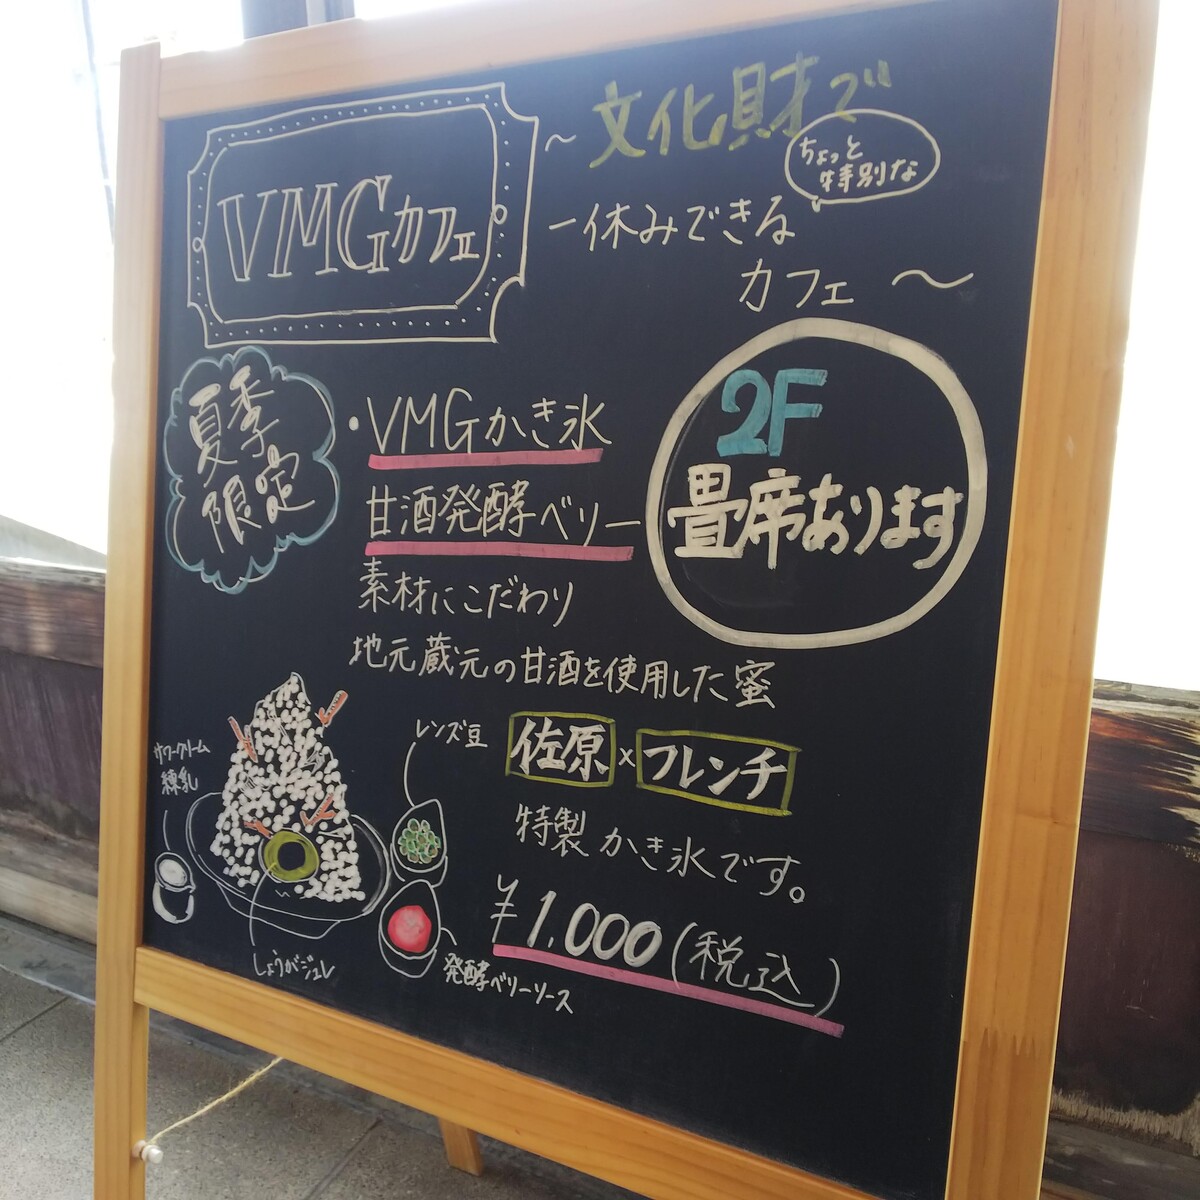 VMGカフェ
～文化財で
ちょっと
特別な
一休みできる
カフェ～
夏季
限定
・VMGかき氷
甘酒発酵ベリー
素材にこだわり
地元蔵元の甘酒を使用した蜜
2F
畳席あります
佐原×フレンチ
特製かき氷です。
¥1.000(税込)
サワークリーム
練乳
レンズ豆
しょうがジュレ
発酵ベリーソース